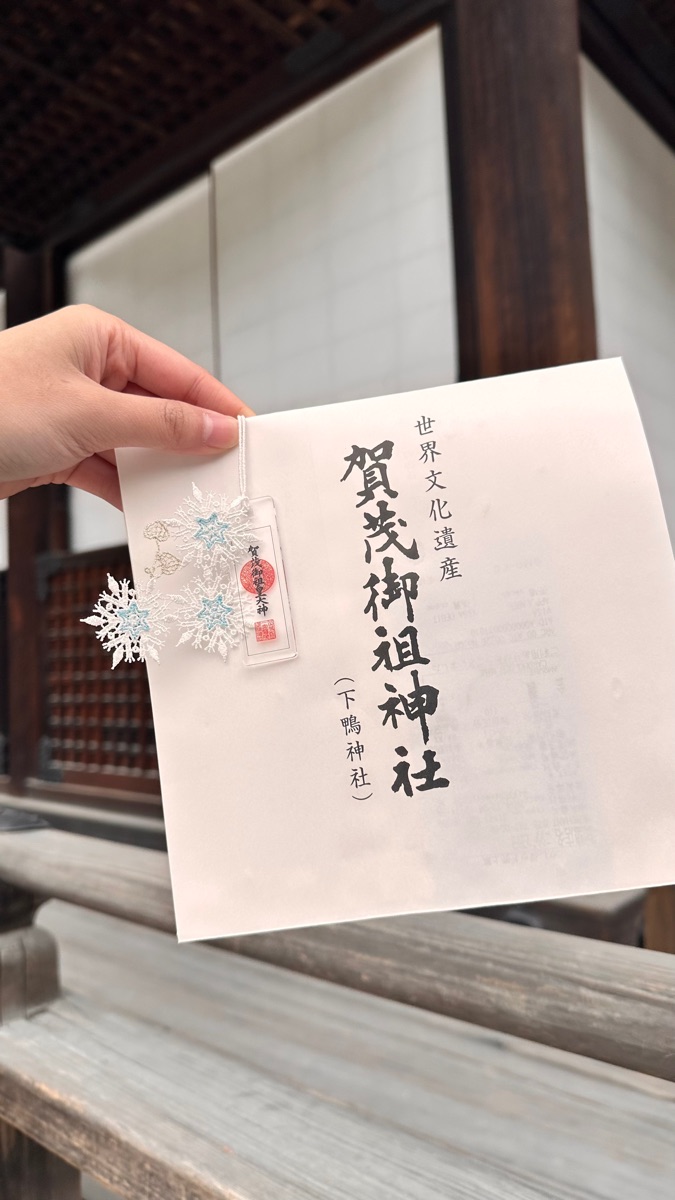 世界文化遺産
賀茂御祖神社
（下鴨神社）
賀茂御祖皇大神